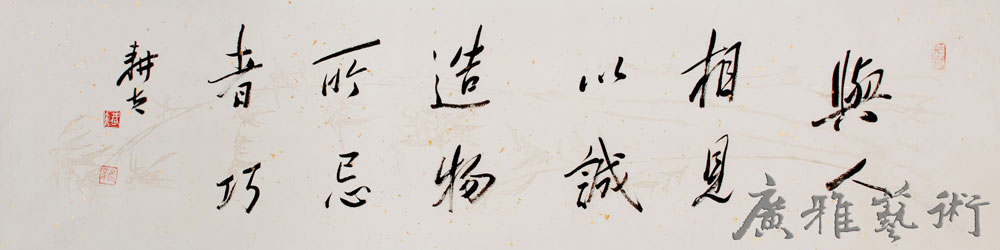 與人
相見
以誠
造物
所忌
者巧
耕夫
廣雅藝術